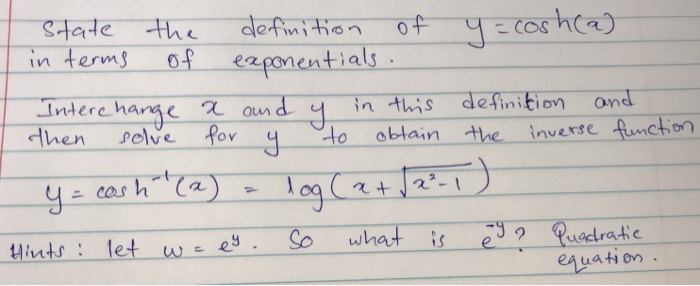 State the definition of y = cosh(x)
in terms of exponentials.
Interchange x and y in this definition and
then solve for y to obtain the inverse function
y = cosh⁻¹(x) = log(x + √(x² - 1))
Hints : let w = e^y. So what is e^-y? Quadratic
equation.